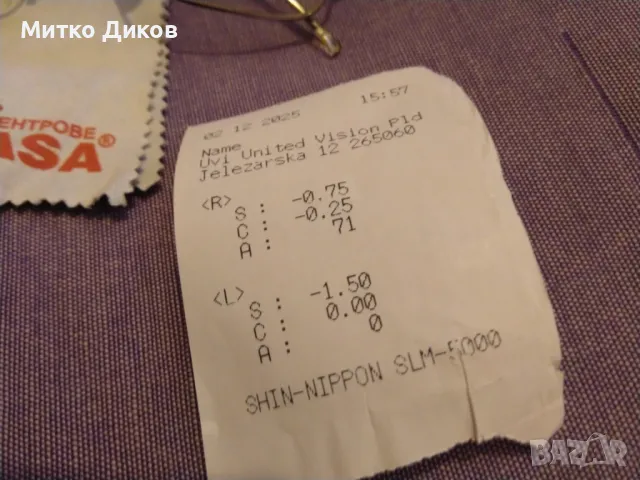 Митко Диков
ЕНТРОВЕ®
ASA
02 12 2025 15:57
Name
Uvi United Vision Pld
Jelezarska 12 265060
<R>
S : -0.75
C : -0.25
A : 71
<L>
S : -1.50
C : 0.00
A : 0
SHIN-NIPPON SLM-5000
BAZAR